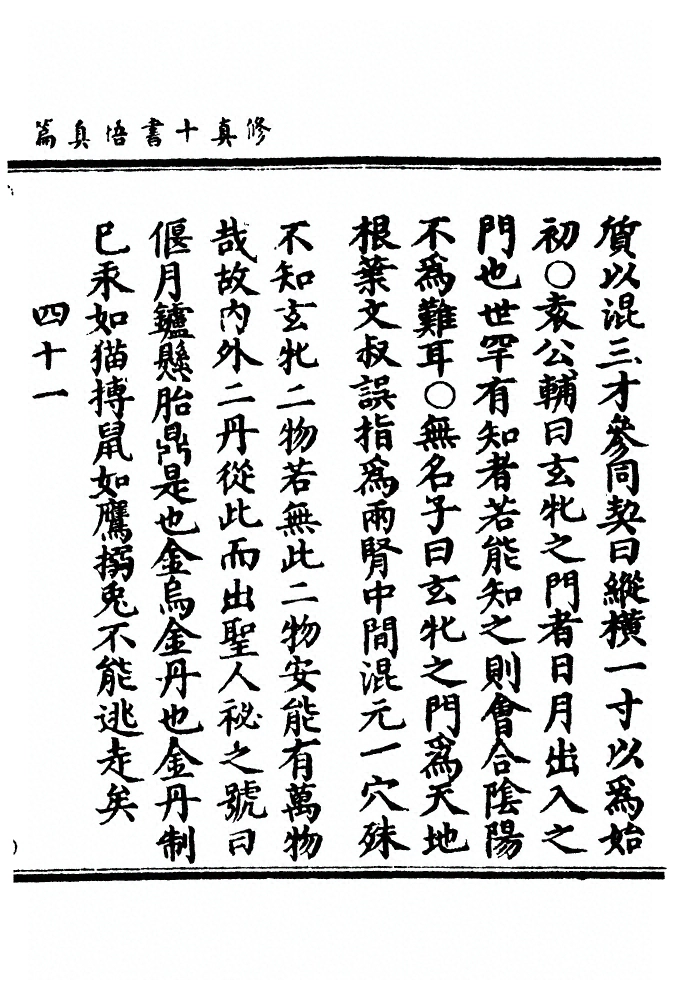 修真十書悟真篇
質以混三才參同契曰縱橫一寸以爲始
初○袁公輔曰玄牝之門者日月出入之
門也世罕有知者若能知之則會合陰陽
不爲難耳○無名子曰玄牝之門爲天地
根葉文叔誤指爲兩腎中間混元一穴殊
不知玄牝二物若無此二物安能有萬物
哉故內外二丹從此而出聖人祕之號曰
偃月鑪懸胎鼎是也金烏金丹也金丹制
巳汞如猫搏鼠如鷹搦兎不能逃走矣
四十一